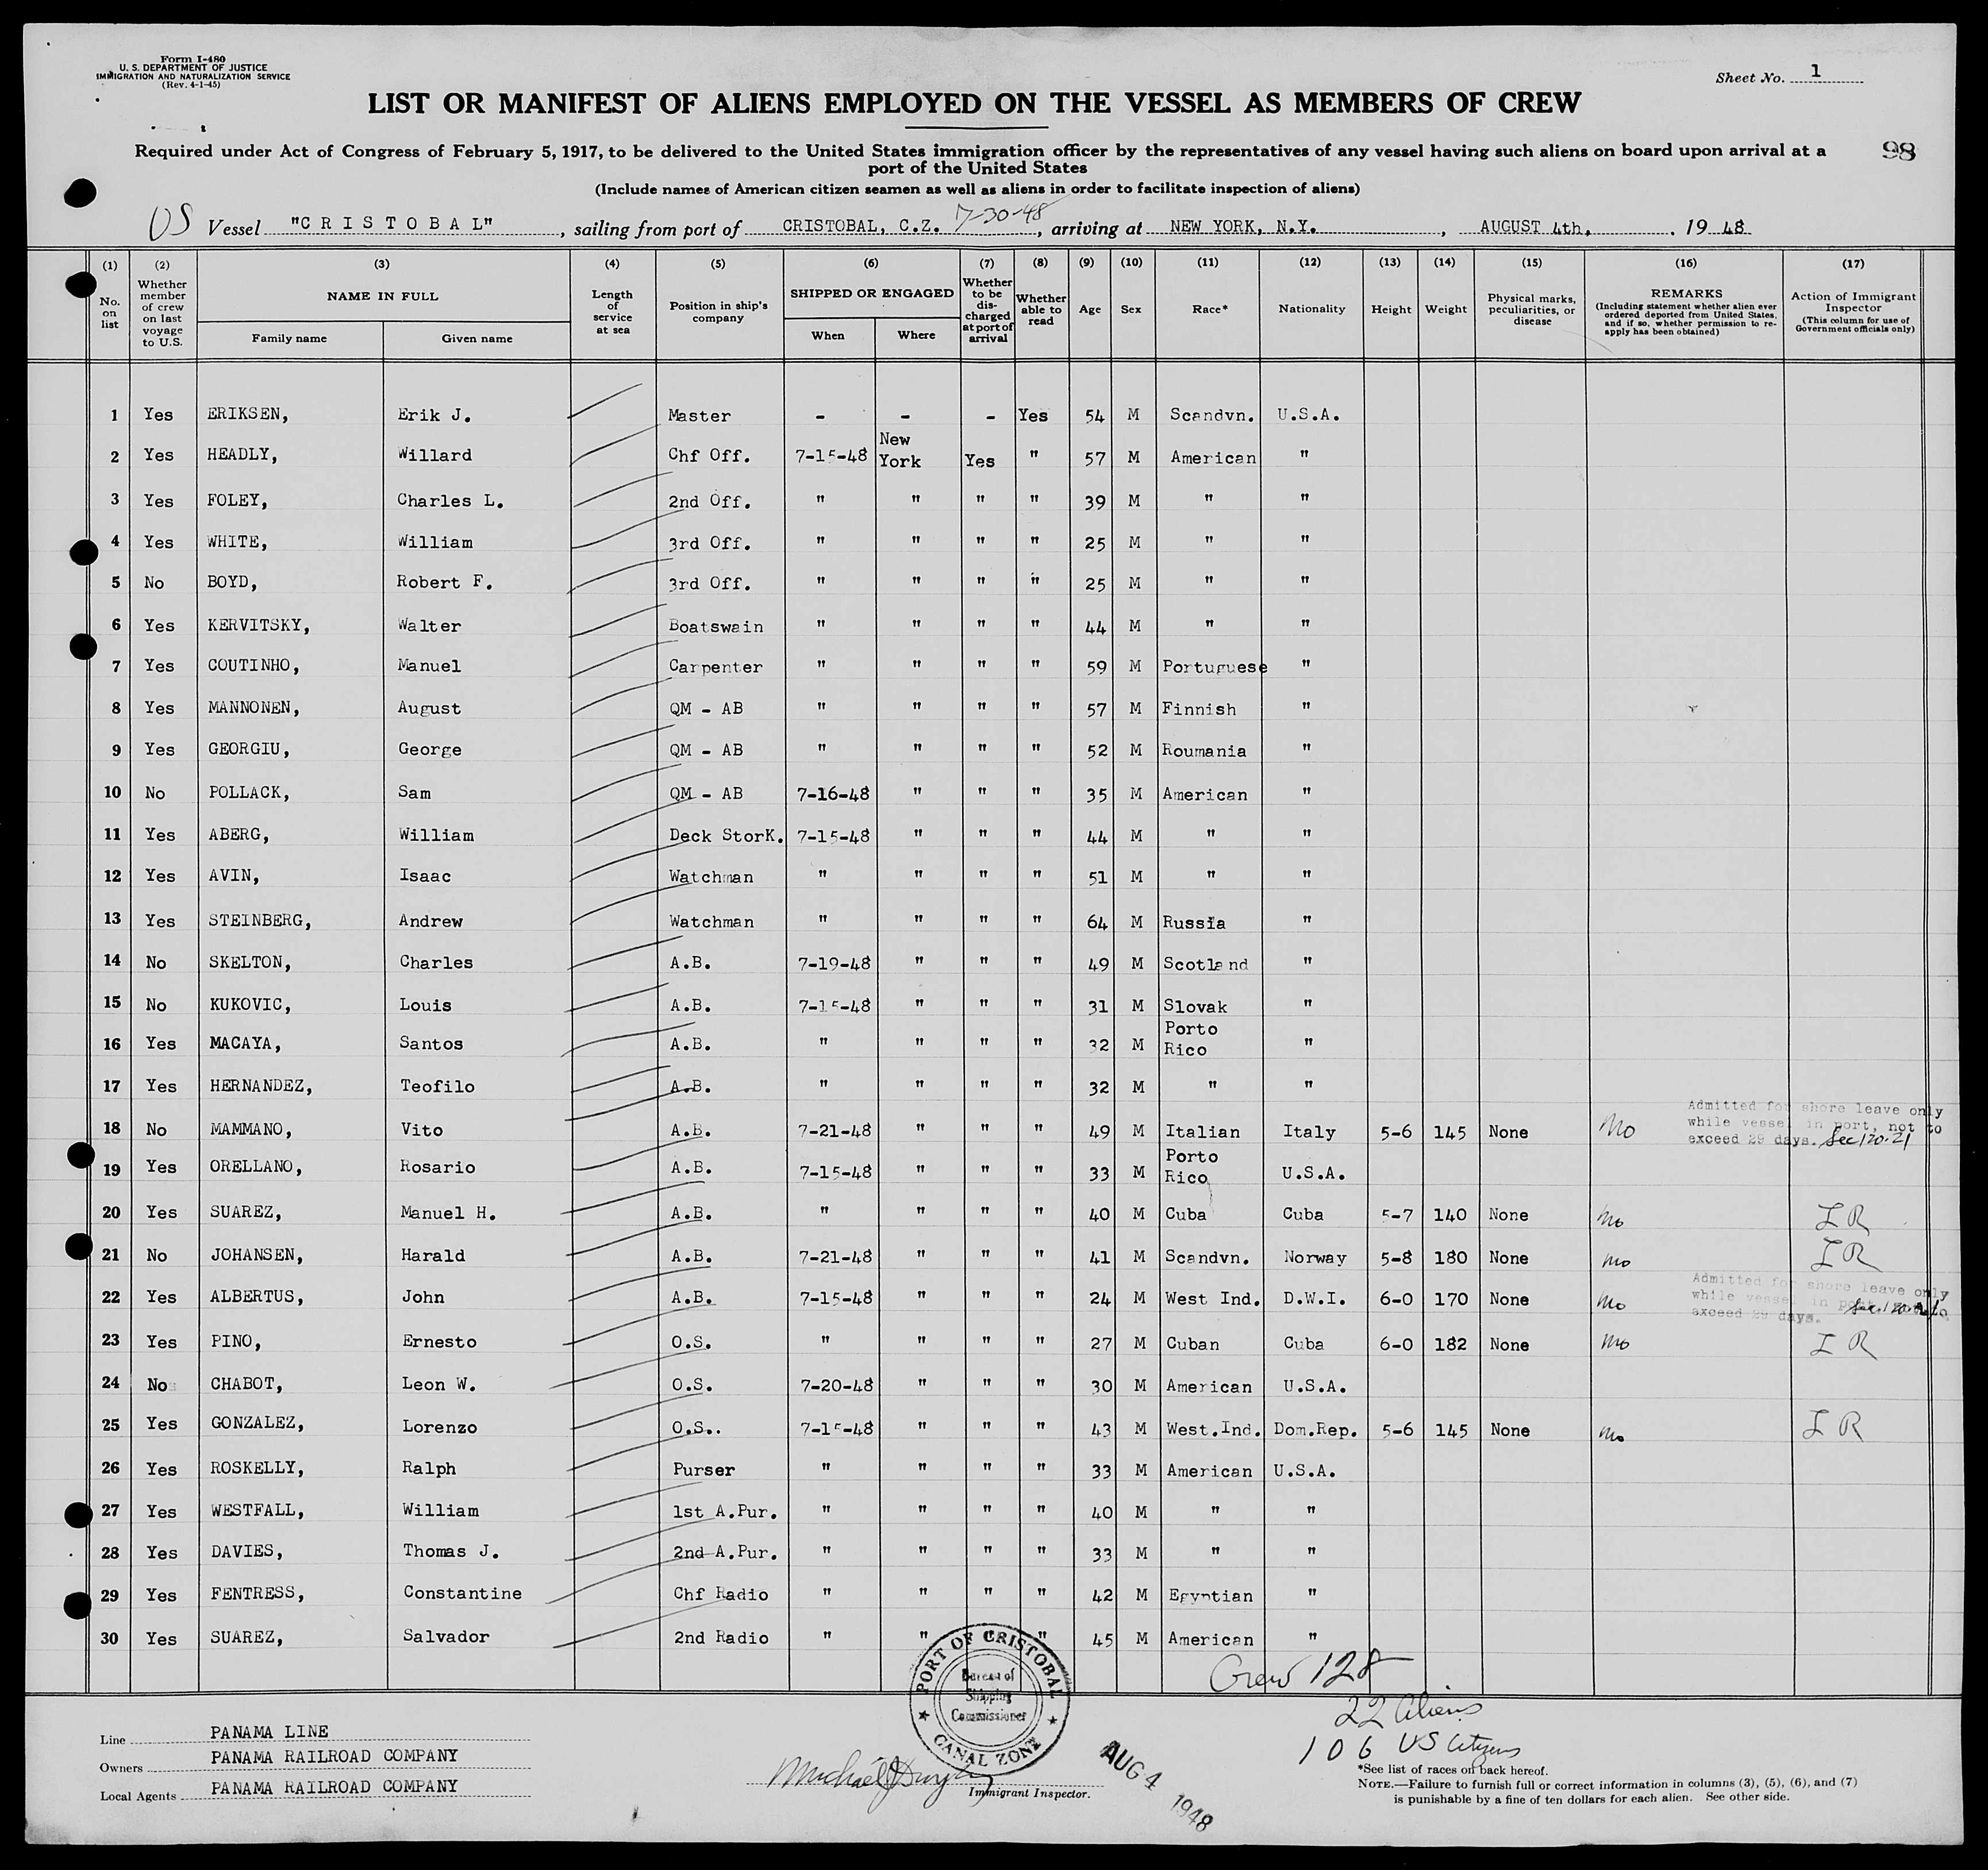 Form I-480
U. S. DEPARTMENT OF JUSTICE
IMMIGRATION AND NATURALIZATION SERVICE
(Rev. 4-1-45)
Sheet No. 1
LIST OR MANIFEST OF ALIENS EMPLOYED ON THE VESSEL AS MEMBERS OF CREW
98
Required under Act of Congress of February 5, 1917, to be delivered to the United States immigration officer by the representatives of any vessel having such aliens on board upon arrival at a
port of the United States
(Include names of American citizen seamen as well as aliens in order to facilitate inspection of aliens)
US Vessel "C R I S T O B A L", sailing from port of CRISTOBAL, C.Z. 7-30-48, arriving at NEW YORK, N.Y., AUGUST 4th, 19 48
(1) No. on list
(2) Whether member of crew on last voyage to U.S.
(3) NAME IN FULL Family name Given name
(4) Length of service at sea
(5) Position in ship's company
(6) SHIPPED OR ENGAGED When Where
(7) Whether to be discharged at port of arrival
(8) Whether able to read
(9) Age
(10) Sex
(11) Race*
(12) Nationality
(13) Height
(14) Weight
(15) Physical marks, peculiarities, or disease
(16) REMARKS (Including statement whether alien ever ordered deported from United States, and if so, whether permission to reapply has been obtained)
(17) Action of Immigrant Inspector (This column for use of Government officials only)
1 Yes ERIKSEN, Erik J. Master - - - Yes 54 M Scandvn. U.S.A.
2 Yes HEADLY, Willard Chf Off. 7-15-48 New York Yes " 57 M American "
3 Yes FOLEY, Charles L. 2nd Off. " " " " 39 M " "
4 Yes WHITE, William 3rd Off. " " " " 25 M " "
5 No BOYD, Robert F. 3rd Off. " " " " 25 M " "
6 Yes KERVITSKY, Walter Boatswain " " " " 44 M " "
7 Yes COUTINHO, Manuel Carpenter " " " " 59 M Portuguese "
8 Yes MANNONEN, August QM - AB " " " " 57 M Finnish "
9 Yes GEORGIU, George QM - AB " " " " 52 M Roumania "
10 No POLLACK, Sam QM - AB 7-16-48 " " " 35 M American "
11 Yes ABERG, William Deck StorK. 7-15-48 " " " 44 M " "
12 Yes AVIN, Isaac Watchman " " " " 51 M " "
13 Yes STEINBERG, Andrew Watchman " " " " 64 M Russia "
14 No SKELTON, Charles A.B. 7-19-48 " " " 49 M Scotland "
15 No KUKOVIC, Louis A.B. 7-15-48 " " " 31 M Slovak "
16 Yes MACAYA, Santos A.B. " " " " 32 M Porto Rico "
17 Yes HERNANDEZ, Teofilo A.B. " " " " 32 M " "
18 No MAMMANO, Vito A.B. 7-21-48 " " " 49 M Italian Italy 5-6 145 None Mo Admitted for shore leave only while vessel in port, not to exceed 29 days. Sec 120.21
19 Yes ORELLANO, Rosario A.B. 7-15-48 " " " 33 M Porto Rico U.S.A.
20 Yes SUAREZ, Manuel H. A.B. " " " " 40 M Cuba Cuba 5-7 140 None Mo I R
21 No JOHANSEN, Harald A.B. 7-21-48 " " " 41 M Scandvn. Norway 5-8 180 None Mo I R
22 Yes ALBERTUS, John A.B. 7-15-48 " " " 24 M West Ind. D.W.I. 6-0 170 None Mo Admitted for shore leave only while vessel in port, exceed 29 days.
23 Yes PINO, Ernesto O.S. " " " " 27 M Cuban Cuba 6-0 182 None Mo I R
24 No CHABOT, Leon W. O.S. 7-20-48 " " " 30 M American U.S.A.
25 Yes GONZALEZ, Lorenzo O.S.. 7-15-48 " " " 43 M West.Ind. Dom.Rep. 5-6 145 None Mo I R
26 Yes ROSKELLY, Ralph Purser " " " " 33 M American U.S.A.
27 Yes WESTFALL, William 1st A.Pur. " " " " 40 M " "
28 Yes DAVIES, Thomas J. 2nd A.Pur. " " " " 33 M " "
29 Yes FENTRESS, Constantine Chf Radio " " " " 42 M Egyptian "
30 Yes SUAREZ, Salvador 2nd Radio " " " " 45 M American "
PORT OF CRISTOBAL
Bureau of
Shipping
Commissioner
CANAL ZONE
Crew 128
22 Aliens
106 US Citizens
Line PANAMA LINE
Owners PANAMA RAILROAD COMPANY
Local Agents PANAMA RAILROAD COMPANY
Immigrant Inspector.
AUG 4 1948
*See list of races on back hereof.
NOTE.—Failure to furnish full or correct information in columns (3), (5), (6), and (7)
is punishable by a fine of ten dollars for each alien. See other side.